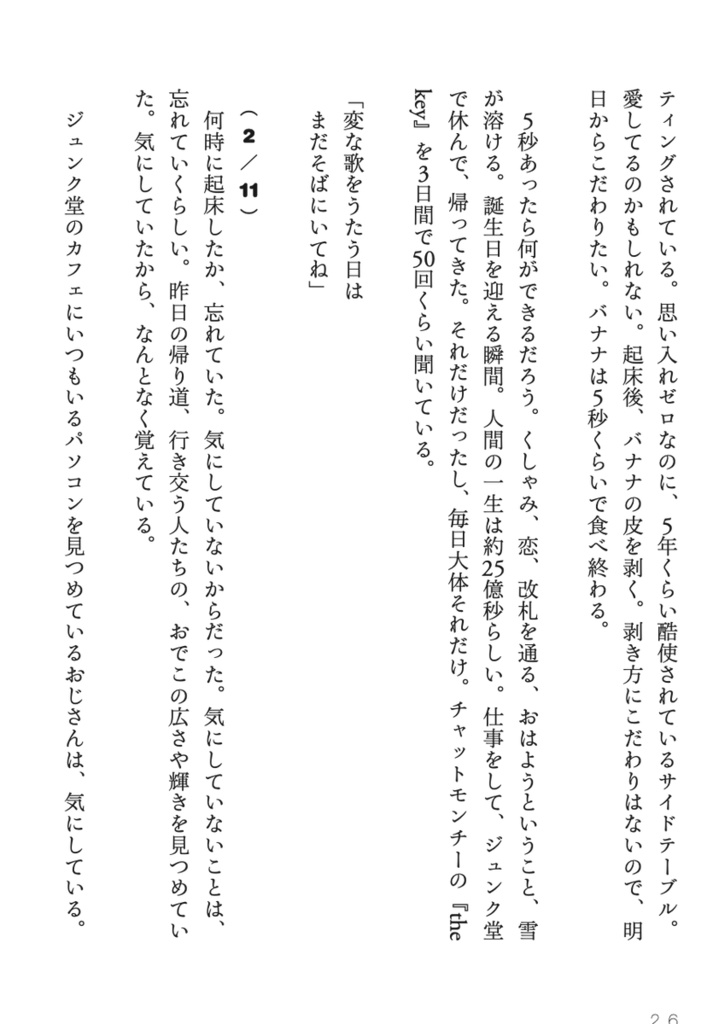 ティングされている。思い入れゼロなのに、5年くらい酷使されているサイドテーブル。
愛してるのかもしれない。起床後、バナナの皮を剥く。剥き方にこだわりはないので、明
日からこだわりたい。バナナは5秒くらいで食べ終わる。
5秒あったら何ができるだろう。くしゃみ、恋、改札を通る、おはようということ、雪
が溶ける。誕生日を迎える瞬間。人間の一生は約25億秒らしい。仕事をして、ジュンク堂
で休んで、帰ってきた。それだけだったし、毎日大体それだけ。チャットモンチーの『the
key』を3日間で50回くらい聞いている。
「変な歌をうたう日は
まだそばにいてね」
（2／11）
何時に起床したか、忘れていた。気にしていないからだった。気にしていないことは、
忘れていくらしい。昨日の帰り道、行き交う人たちの、おでこの広さや輝きを見つめてい
た。気にしていたから、なんとなく覚えている。
ジュンク堂のカフェにいつもいるパソコンを見つめているおじさんは、気にしている。
26